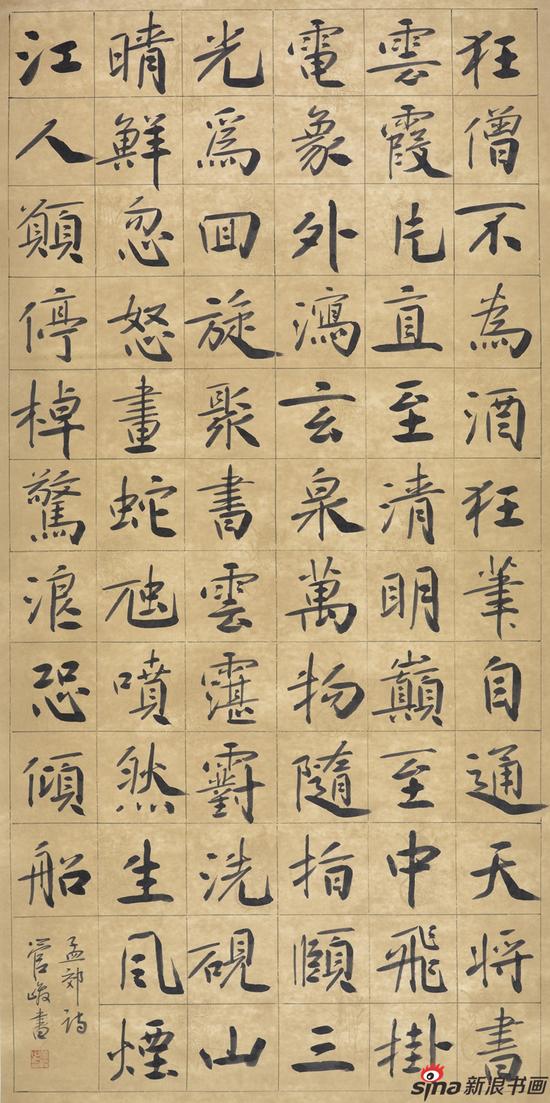 狂僧不為酒狂筆自通天将書
雲霞片直至清明巔至中飛掛
電象外瀉玄泉萬物隨指顧三
光爲回旋聚書雲霮䨴洗硯山
晴鮮忽怒畫蛇虺噴然生風煙
江人願停棹驚浪恐傾船
孟郊诗
管峻書
sina新浪书画